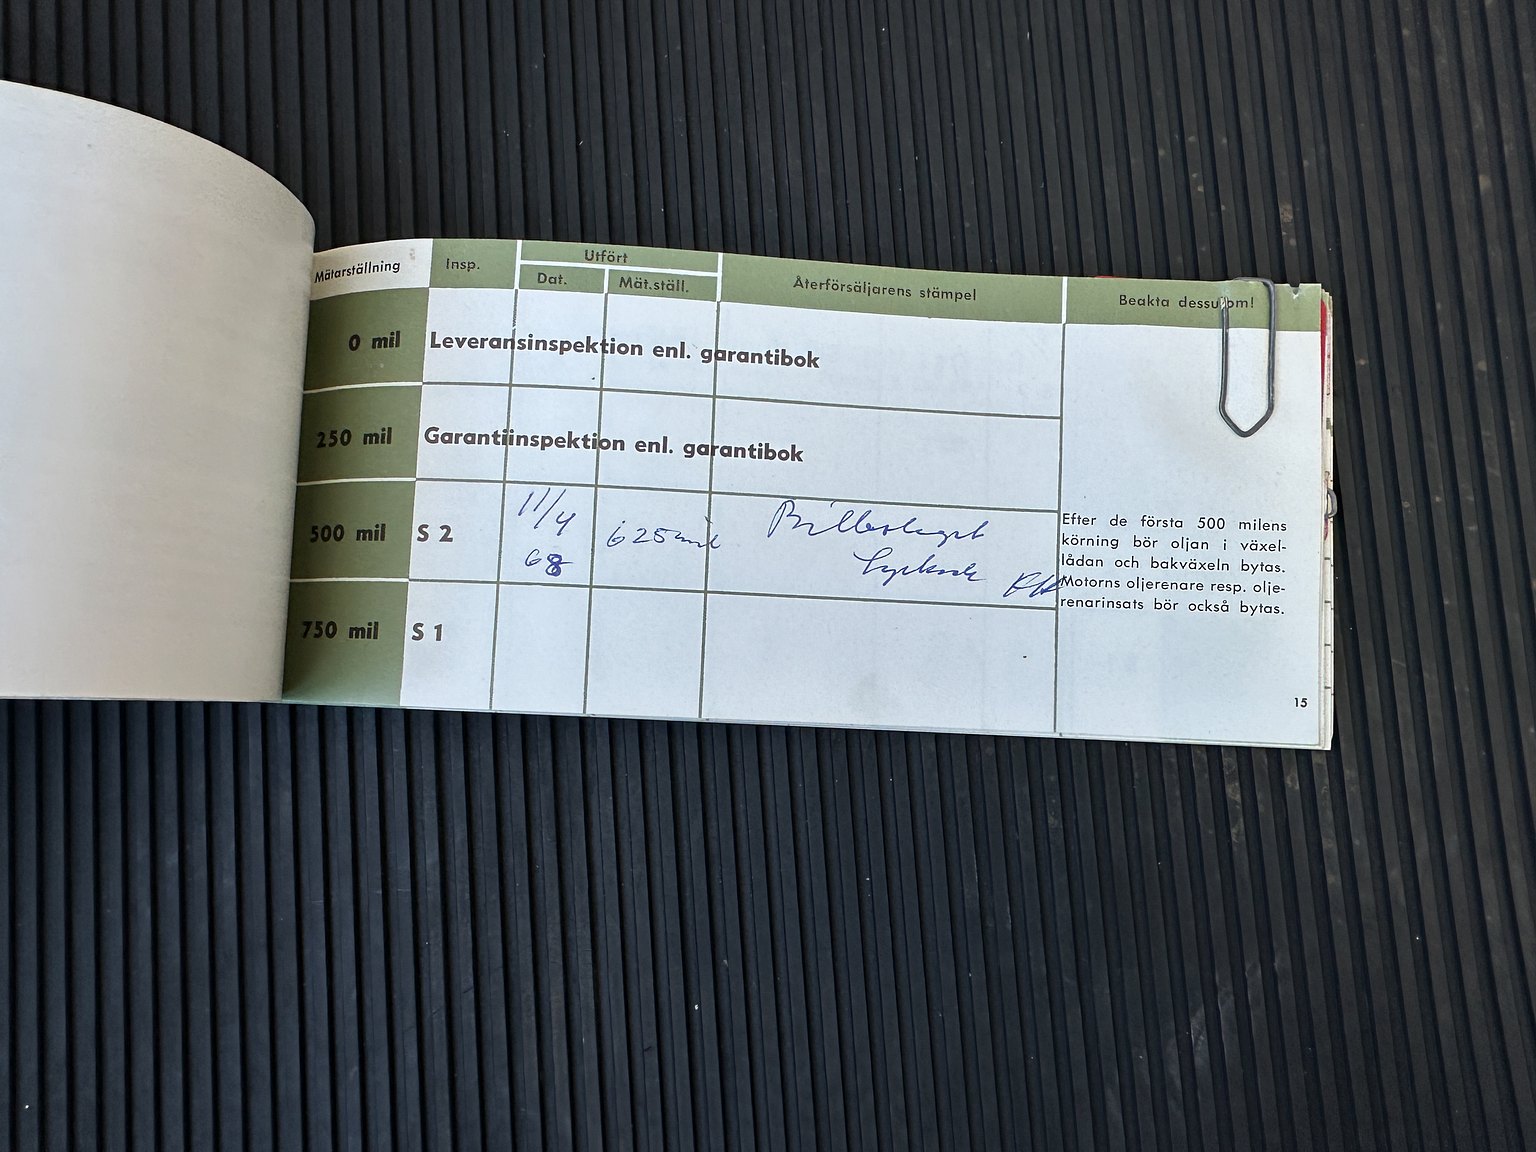 Mätarställning Insp. Utfört Återförsäljarens stämpel Beakta dessutom!
Dat. Mät.ställ.
0 mil Leveransinspektion enl. garantibok
250 mil Garantiinspektion enl. garantibok
500 mil S 2 11/4 68 625 mil Bilbolaget
Efter de första 500 milens
körning bör oljan i växel-
lådan och bakväxeln bytas.
Motorns oljerenare resp. olje-
renarinsats bör också bytas.
750 mil S 1
15